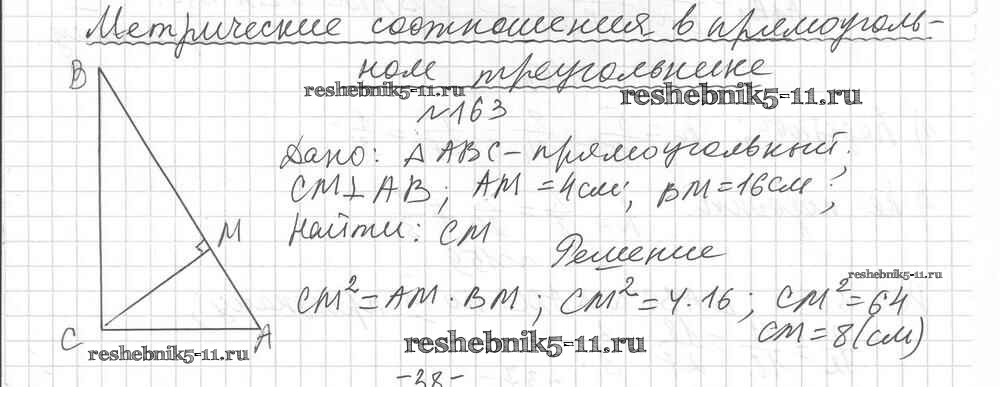 Метрические соотношения в прямоуголь-
ном треугольнике
reshebnik5-11.ru
reshebnik5-11.ru
№163
B
Дано: ΔABC – прямоугольный;
CM⊥AB; AM = 4см; BM = 16см;
Найти: CM
M
Решение
reshebnik5-11.ru
CM² = AM · BM; CM² = 4 · 16; CM² = 64
CM = 8 (см)
C
A
reshebnik5-11.ru
reshebnik5-11.ru
-38-